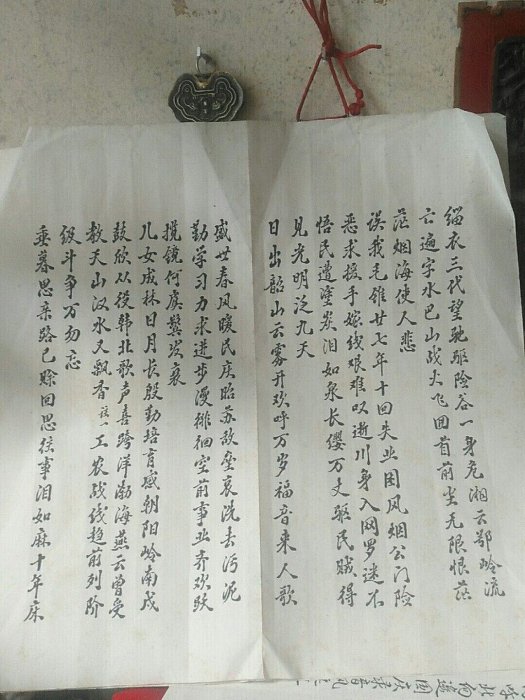 缁衣三代望驰驱险谷一身危湘云鄂岭流
亡遍字水巴山战火飞回首前尘无限恨茫
茫烟海使人悲
误我毛锥廿七年十回失业困风烟公门险
恶求援手嫁线艰难以逝川身入网罗迷不
悟民遭涂炭泪如泉长缨万丈驱民贼得
见光明泛九天
日出韶山云雾开欢呼万岁福音来人歌
盛世春风暖民庆昭苏故垒哀洗去污泥
勤学习力求进步漫徘徊空前事业齐欢跃
揽镜何虞鬓发衰
儿女成林日月长殷勤培育感朝阳岭南戍
鼓欣从役韩北歌声喜跨洋渤海燕云曾受
教天山汉水又飘香工农战线趋前列阶
级斗争万勿忘
垂暮思亲路已赊回思往事泪如麻十年床